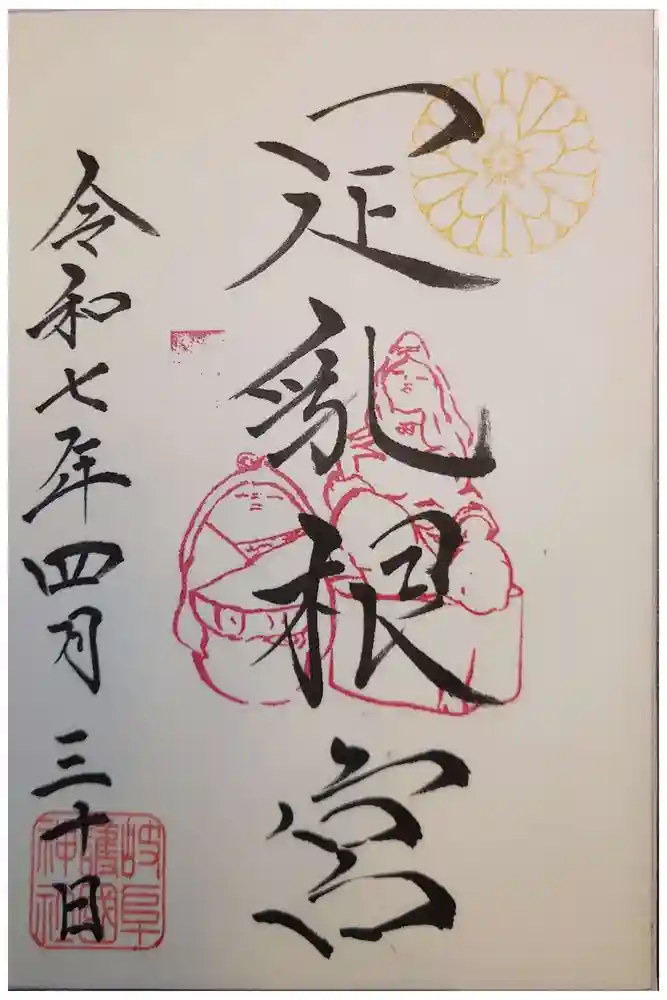 足乳根宮
令和七年四月三十日
岐阜
護國
神社